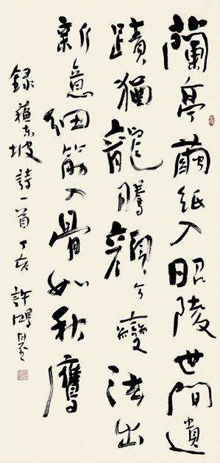 蘭亭繭紙入昭陵世間遺
蹟猶龍騰顏公變法出
新意細筋入骨如秋鷹
錄蘇東坡詩一首丁亥許鴻